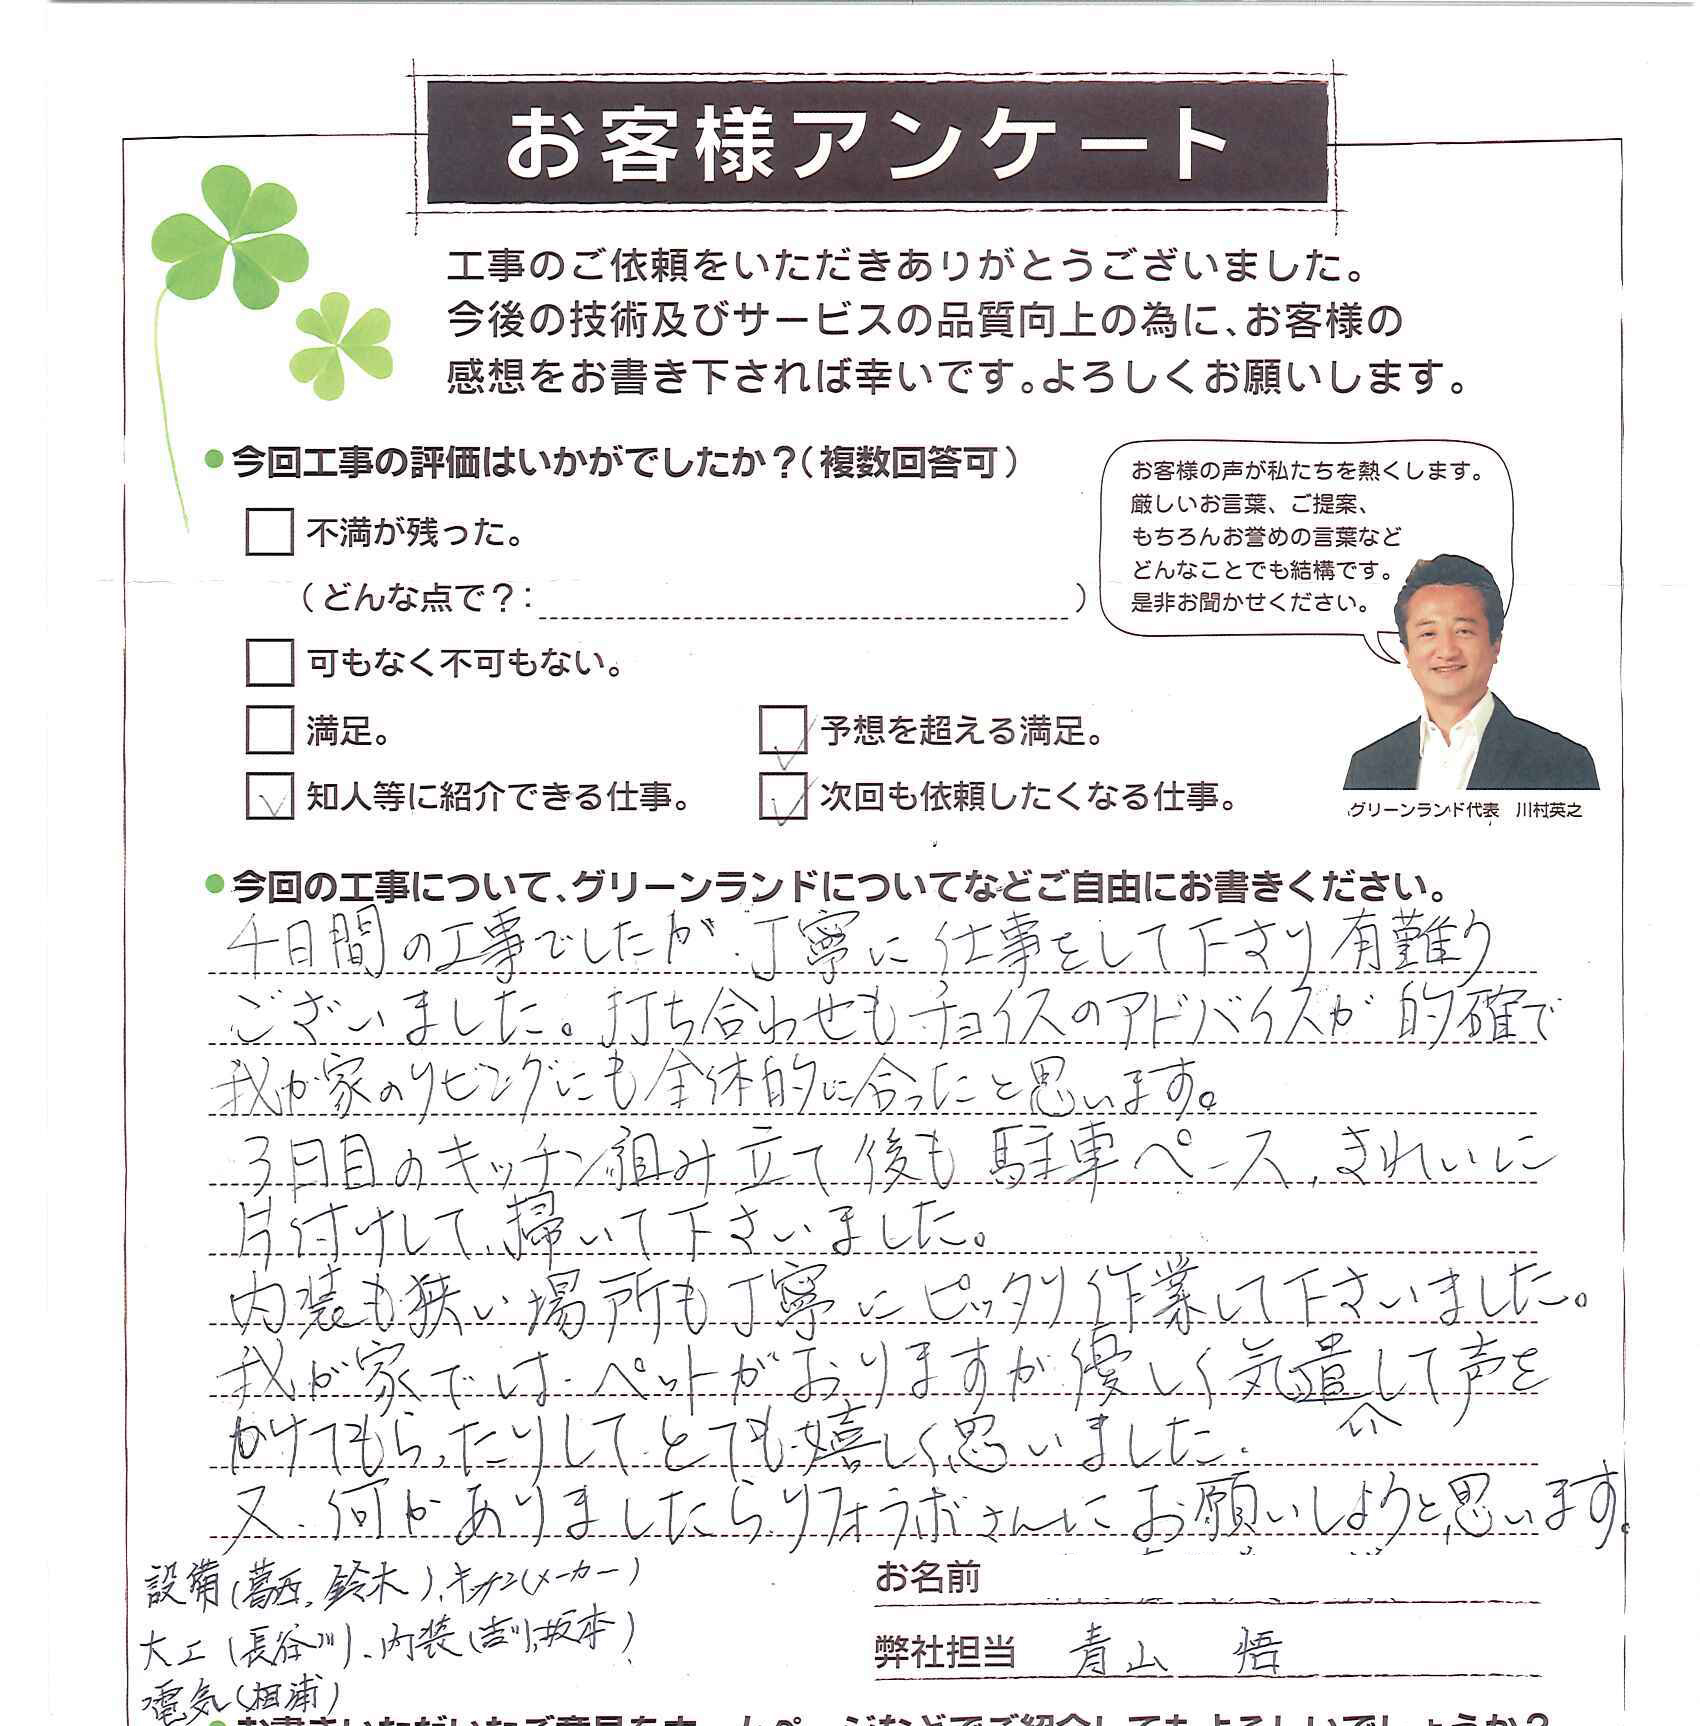 お客様アンケート
工事のご依頼をいただきありがとうございました。
今後の技術及びサービスの品質向上の為に、お客様の
感想をお書き下されば幸いです。よろしくお願いします。
今回工事の評価はいかがでしたか?(複数回答可)
不満が残った。
(どんな点で?: )
可もなく不可もない。
満足。
予想を超える満足。
知人等に紹介できる仕事。
次回も依頼したくなる仕事。
お客様の声が私たちを熱くします。
厳しいお言葉、ご提案、
もちろんお誉めの言葉など
どんなことでも結構です。
是非お聞かせください。
グリーンランド代表 川村英之
今回の工事について、グリーンランドについてなどご自由にお書きください。
4日間の工事でしたが、丁寧に仕事をして下さり有難う
ございました。打ち合わせもチョイスのアドバイスが的確で
我が家のリビングにも全体的に合ったと思います。
3日目のキッチン組み立て後も駐車ペース、きれいに
片付けして、掃いて下さいました。
内装も狭い場所も丁寧にピッタリ作業して下さいました。
我が家では、ペットがおりますが優しく気遣いして声を
かけてもらったりして、とても嬉しく思いました。
又、何かありましたらリフォラボさんにお願いしようと思います。
設備(葛西、鈴木)、キッチン(メーカー)
大工(長谷川)、内装(吉川、坂本)
電気(相浦)
お名前
弊社担当 青山 悟
お書きいただいたご意見をホームページなどでご紹介してもよろしいでしょうか?